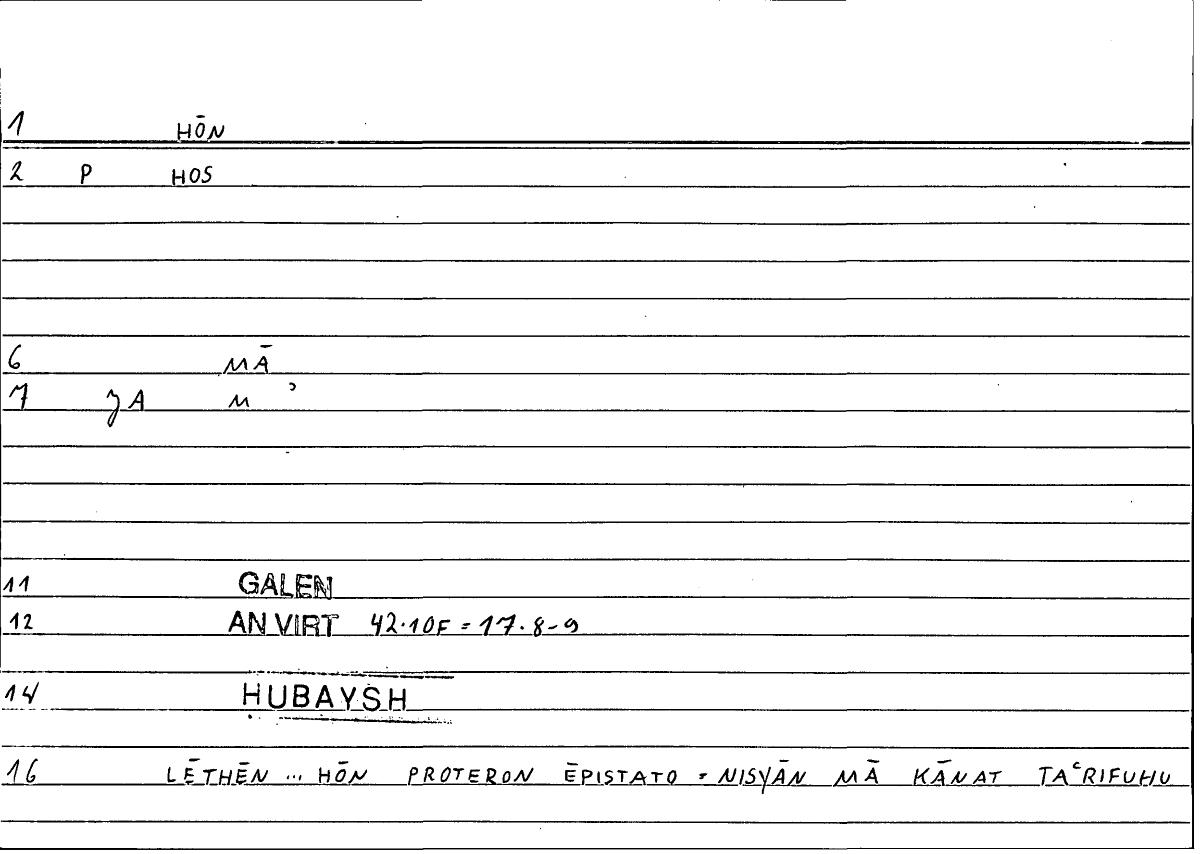 1 HŌN
2 P HOS
6 MĀ
7 ȜA M ʾ
11 GALEN
12 AN VIRT 42.10F = 17.8-9
14 HUBAYSH
16 LĒTHĒN ... HŌN PROTERON ĒPISTATO = NISYĀN MĀ KĀNAT TAʿRIFUHU